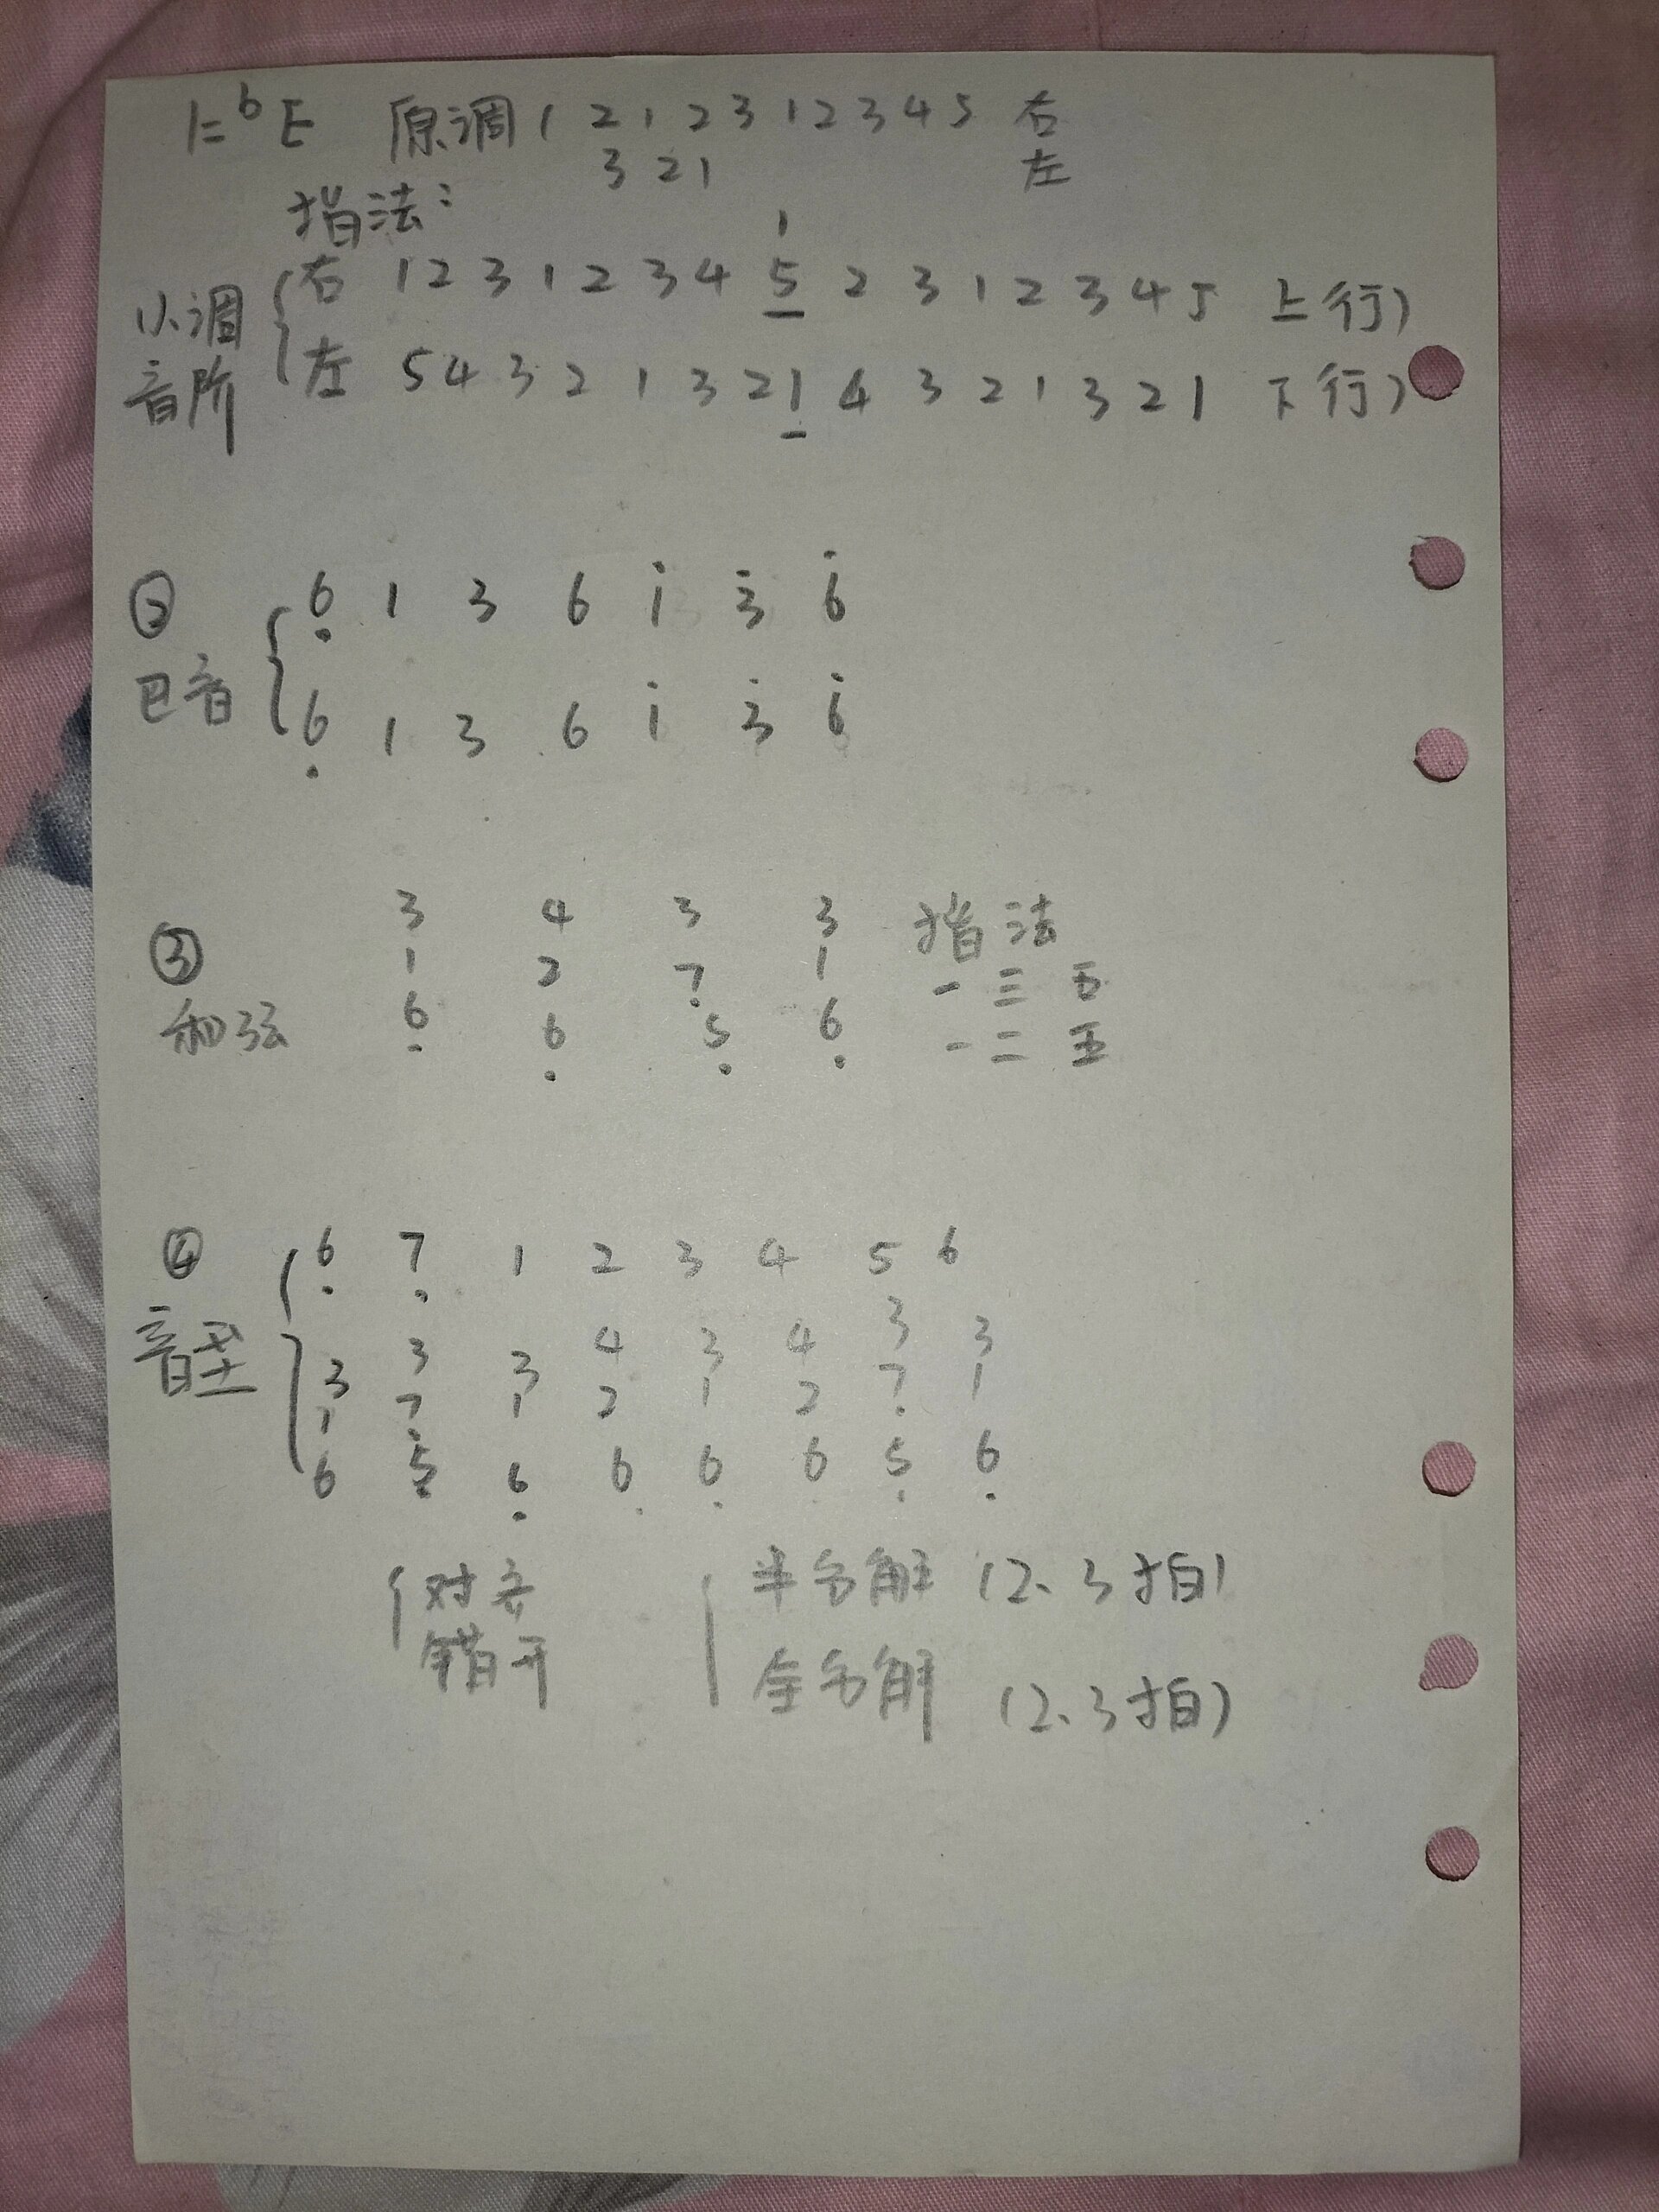 1=bE 原调 1 2 1 2 3 1 2 3 4 5 右
3 2 1 左
指法:
1
小调音阶 右 1 2 3 1 2 3 4 5 2 3 1 2 3 4 5 上行)
左 5 4 3 2 1 3 2 1 4 3 2 1 3 2 1 下行)
② 6̣ 1 3 6 1̇ 3̇ 6̇
巴音 6̣ 1 3 6 1̇ 3̇ 6̇
③ 3 4 3 3 指法
1 2 7̣ 1 一 三 五
和弦 6̣ 6̣ 5̣ 6̣ 一 二 五
④ 6̣ 7̣ 1 2 3 4 5 6
音型 3 3 3 4 3 4 3 3
1 7̣ 1 2 1 2 7̣ 1
6 5̣ 6̣ 6̣ 6̣ 6̣ 5̣ 6̣
对齐 半分解 (2、3拍)
错开
全分解 (2、3拍)